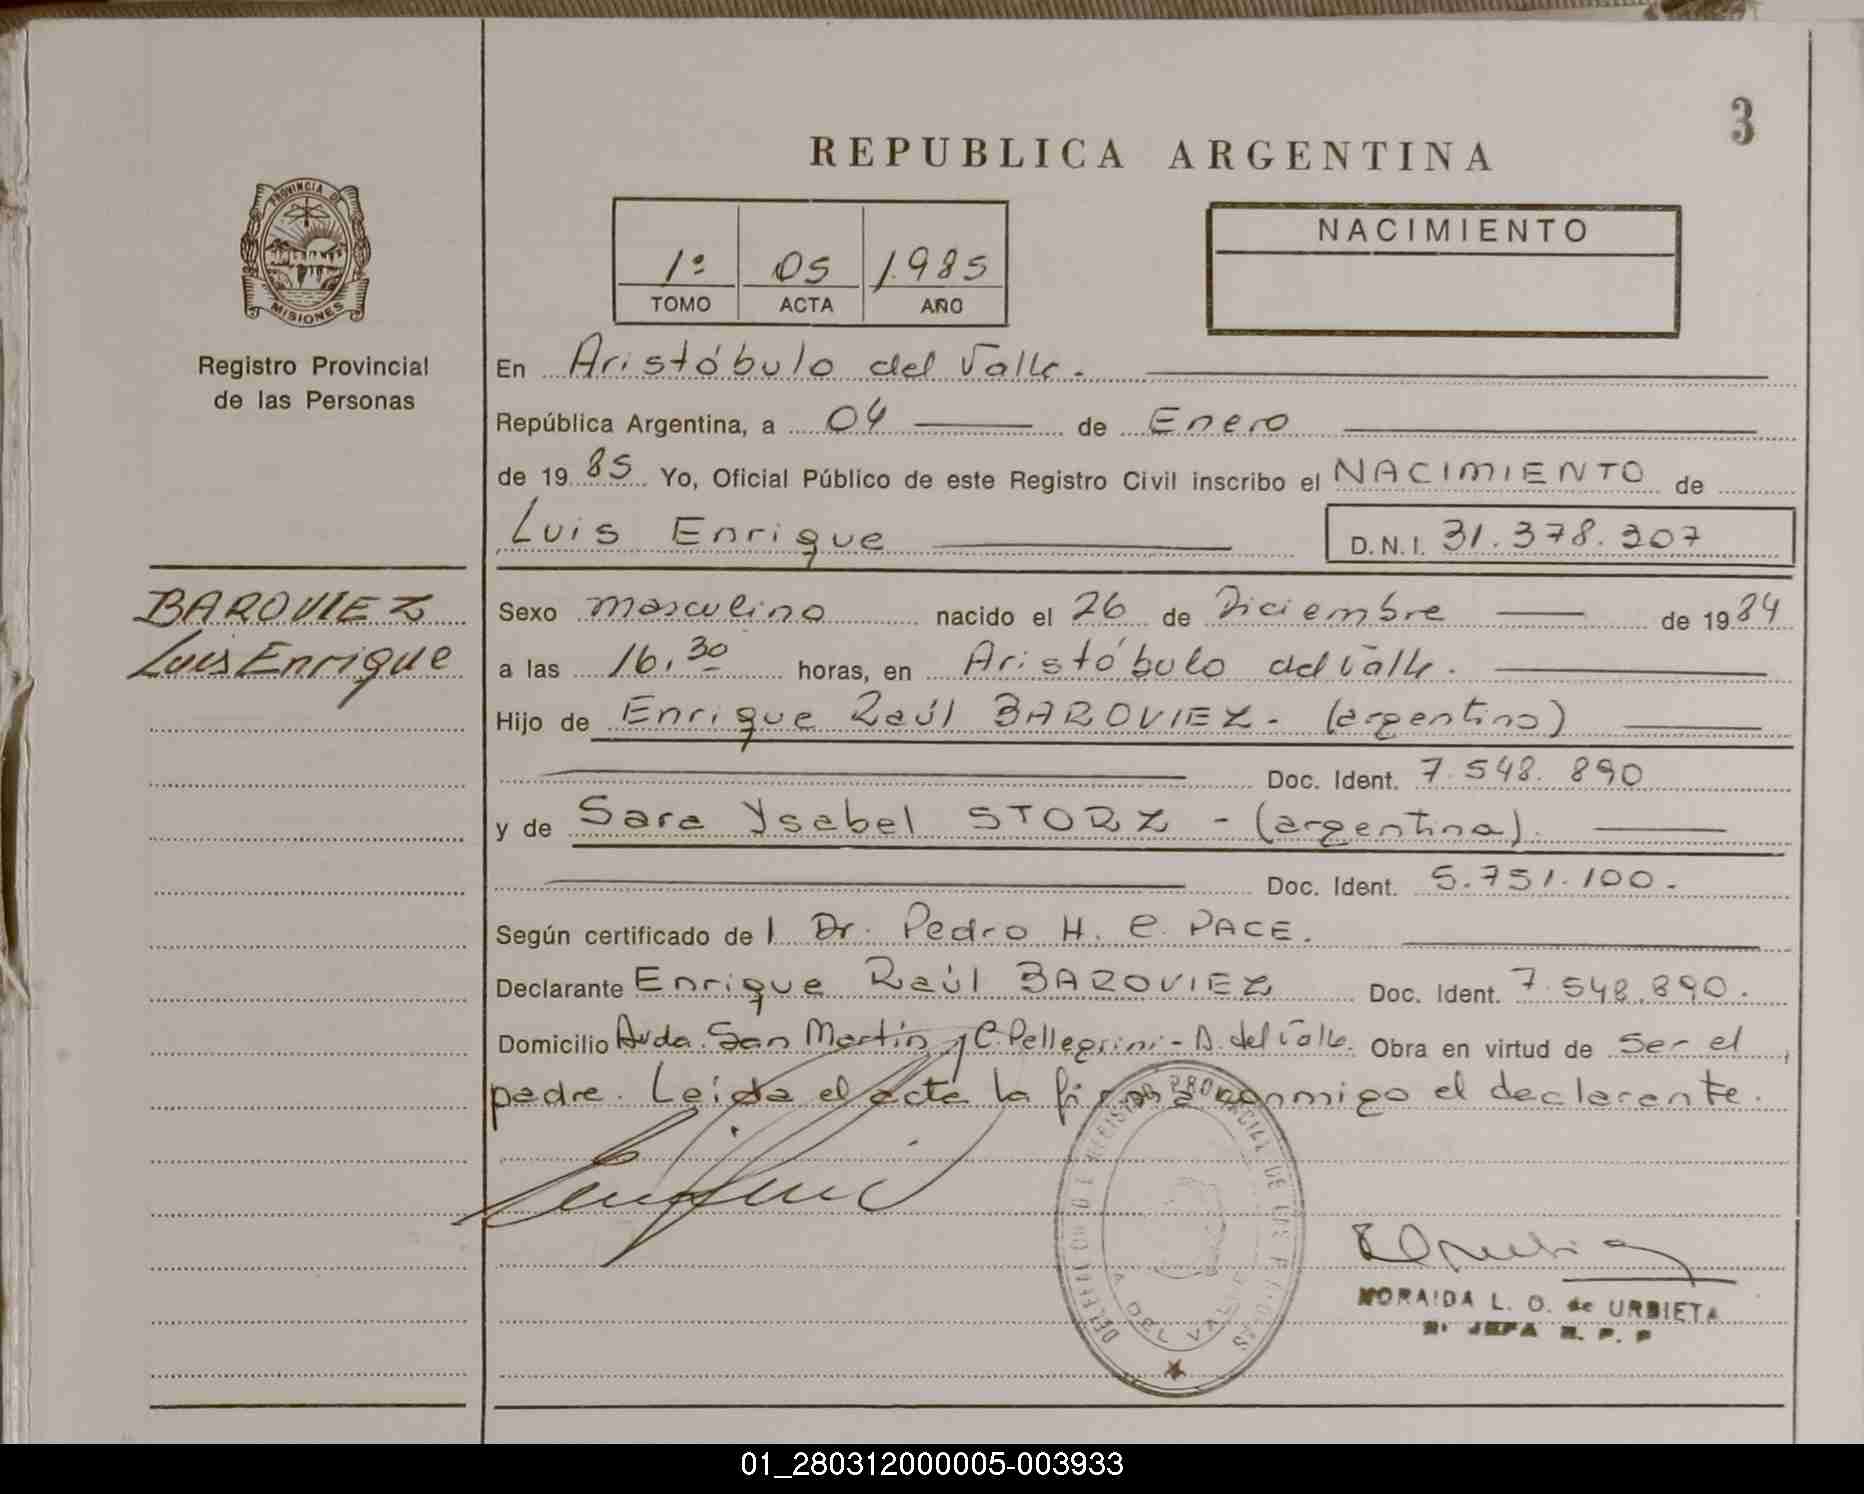 3
REPUBLICA ARGENTINA
PROVINCIA DE
MISIONES
Registro Provincial
de las Personas
1º 05 1985
TOMO ACTA AÑO
NACIMIENTO
En Aristóbulo del Valle.
República Argentina, a 04 de Enero
de 1985 Yo, Oficial Público de este Registro Civil inscribo el NACIMIENTO de
Luis Enrique D.N.I. 31.378.307
BAROVIEZ
Luis Enrique
Sexo masculino nacido el 26 de Diciembre de 1984
a las 16.30 horas, en Aristóbulo del Valle.
Hijo de Enrique Raúl BAROVIEZ - (argentino)
Doc. Ident. 7.548.890
y de Sara Ysabel STORZ - (argentina).
Doc. Ident. 5.751.100.
Según certificado de l Dr. Pedro H. C. PACE.
Declarante Enrique Raúl BAROVIEZ Doc. Ident. 7.548.890.
Domicilio Avda. San Martín y C. Pellegrini - A. del Valle. Obra en virtud de ser el
padre. Leída el acta la firma conmigo el declarante.
DEL VALLE
NORAIDA L. O. de URBIETA
JEFA R. P. P
01_280312000005-003933